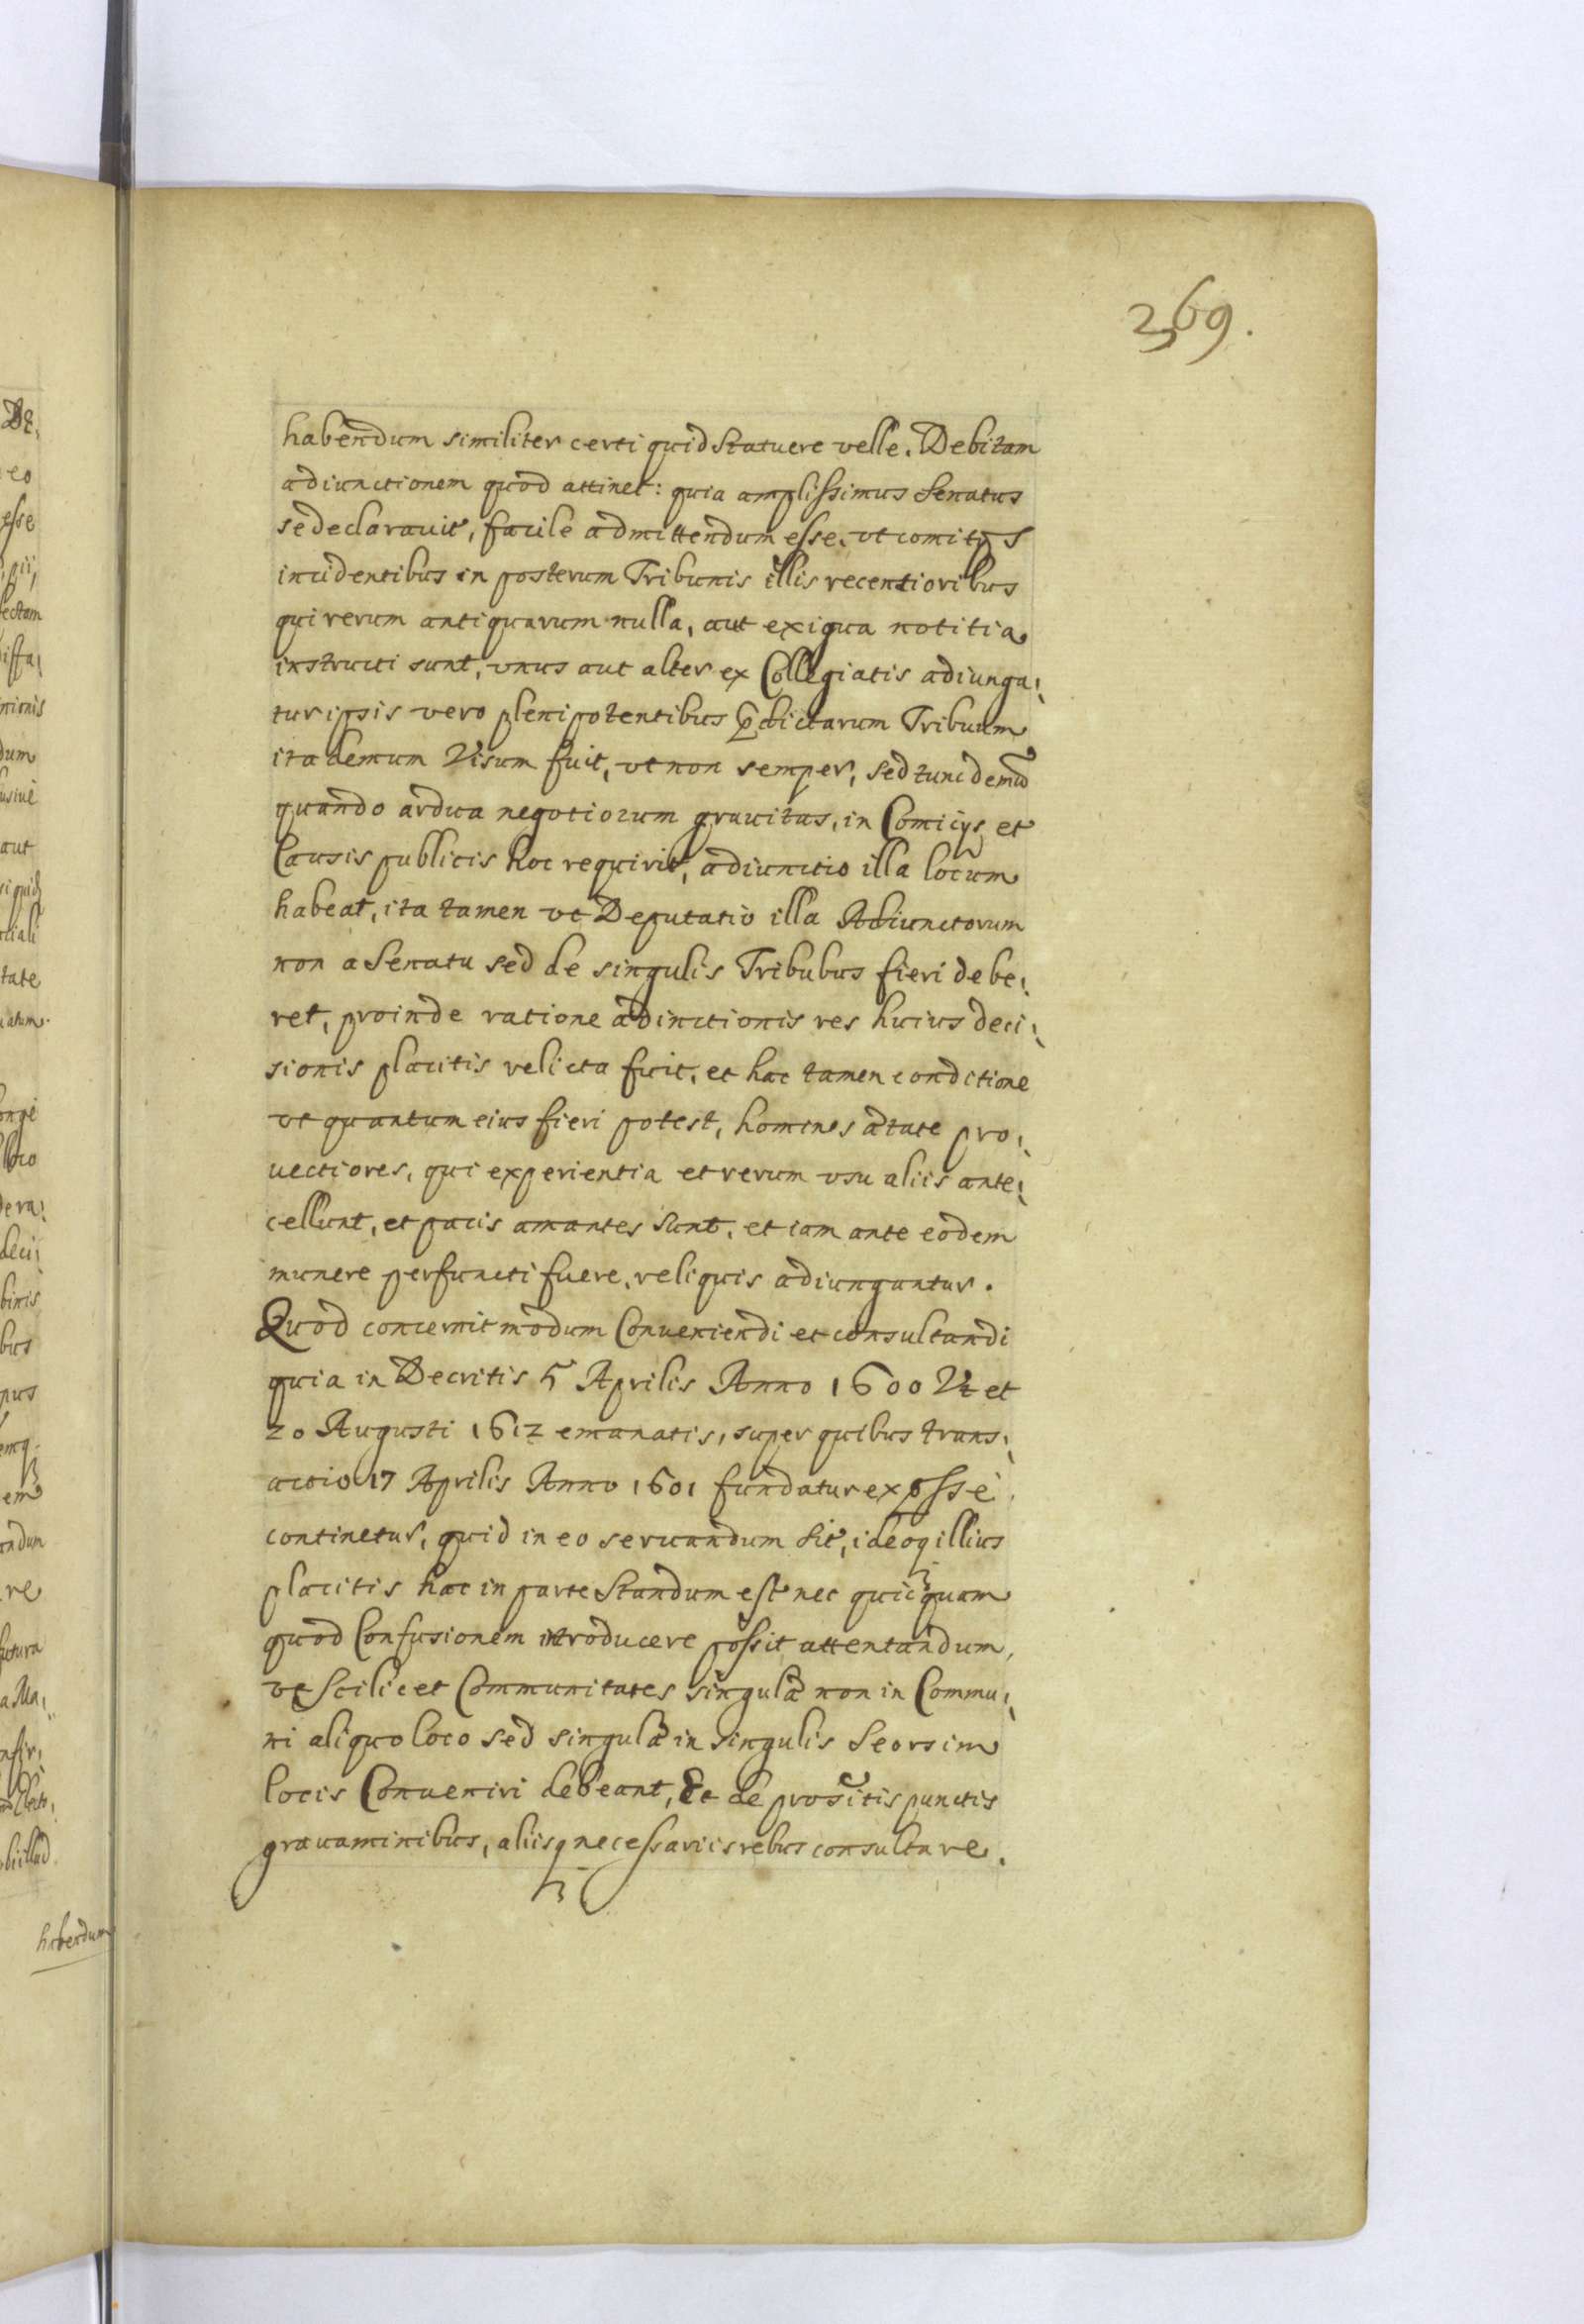 369.
habendum similiter certi quid statuere velle. Debitam
adiunctionem quod attinet: quia amplissimus Senatus
se declarauit, facile admittendum esse, vt comitys
incidentibus in posterum Tribunis illis recentioribus
qui rerum antiquarum nulla, aut exigua notitia
instructi sunt, vnus aut alter ex Collegiatis adiunga,
tur ipsis vero plenipotentibus p̄dictarum Tribuum
ita demum Visum fuit, vt non semper, sed tunc demū
quando ardua negotiorum grauitas, in Comicys et
Causis publicis hoc requirit, adiunctio illa locum
habeat, ita tamen vt Deputatio illa Adiunctorum
non a Senatu sed de singulis Tribubus fieri debe,
ret, proinde ratione adinctionis res huius deci,
sionis placitis relicta fuit, et hac tamen conditione
vt quantum eius fieri potest, homines ætate pro,
uectiores, qui experientia et rerum vsu aliis ante,
cellunt, et pacis amantes sunt, et iam ante eodem
munere perfuncti fuere, reliquis adiungantur.
Quod concernit modum Conueniendi et consultandi
quia in Decritis 5 Aprilis Anno 1600 Vt et
20 Augusti 1612 emanatis, super quibus trans,
actio 17 Aprilis Anno 1601 fundatur expsse
continetur, quid in eo seruandum sit, ideoq illius
placitis hac in parte standum est nec quicquam
quod Confusionem introducere possit attentandum,
vt scilicet Communitates singulæ non in Commu,
ni aliquo loco sed singulæ in singulis seorsim
locis Conueniri debeant, Et de propositis punctis
grauaminibus, aliisq necessariis rebus consultare.
De,
eo
esse
pii,
lectam
issa,
inionis
dum
usiue
aut
si quid
ciali
tate
uatum.
longe
loco
dera,
deci,
binis
bus
pus
emq
em
andum
re
futura
a Ma,
nfir,
habendum